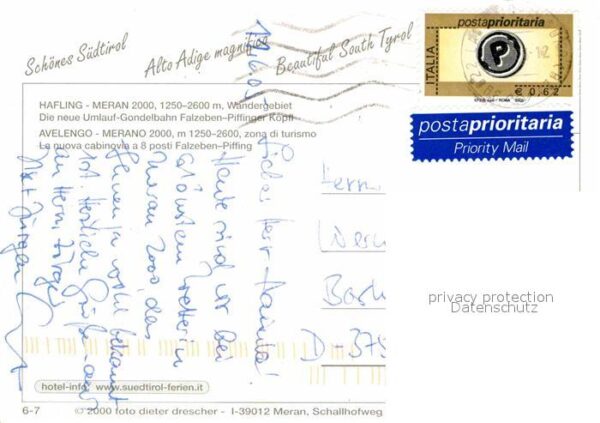 Schönes Südtirol
Alto Adige magnifico
Beautiful South Tyrol
ITALIA
postaprioritaria
P
€ 0,62
postaprioritaria
Priority Mail
HAFLING - MERAN 2000, 1250–2600 m, Wandergebiet
Die neue Umlauf-Gondelbahn Falzeben-Piffinger Köpfl
AVELENGO - MERANO 2000, m 1250–2600, zona di turismo
La nuova cabinovia a 8 posti Falzeben–Piffing
Heute sind wir bei
schönstem Wetter in
Meran 2000, das
Ihnen ja wohl bekannt
ist. Herzliche Grüße auch
an Herrn
Herrn
D-375
privacy protection
Datenschutz
hotel-info: www.suedtirol-ferien.it
6-7 © 2000 foto dieter drescher - I-39012 Meran, Schallhofweg